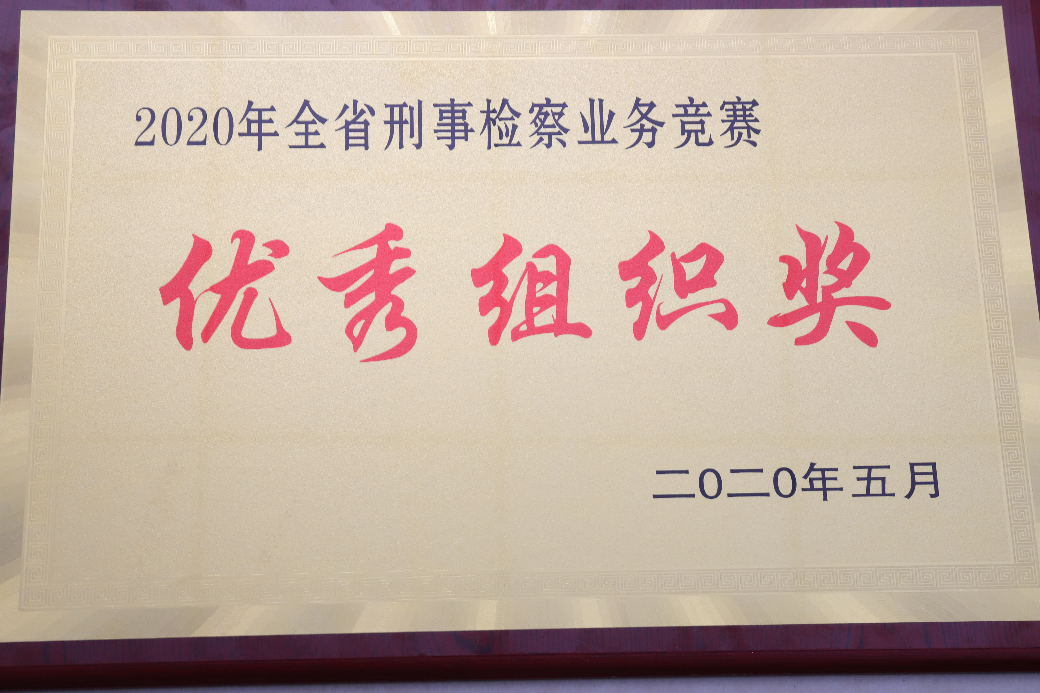 2020年全省刑事检察业务竞赛
优秀组织奖
二〇二〇年五月